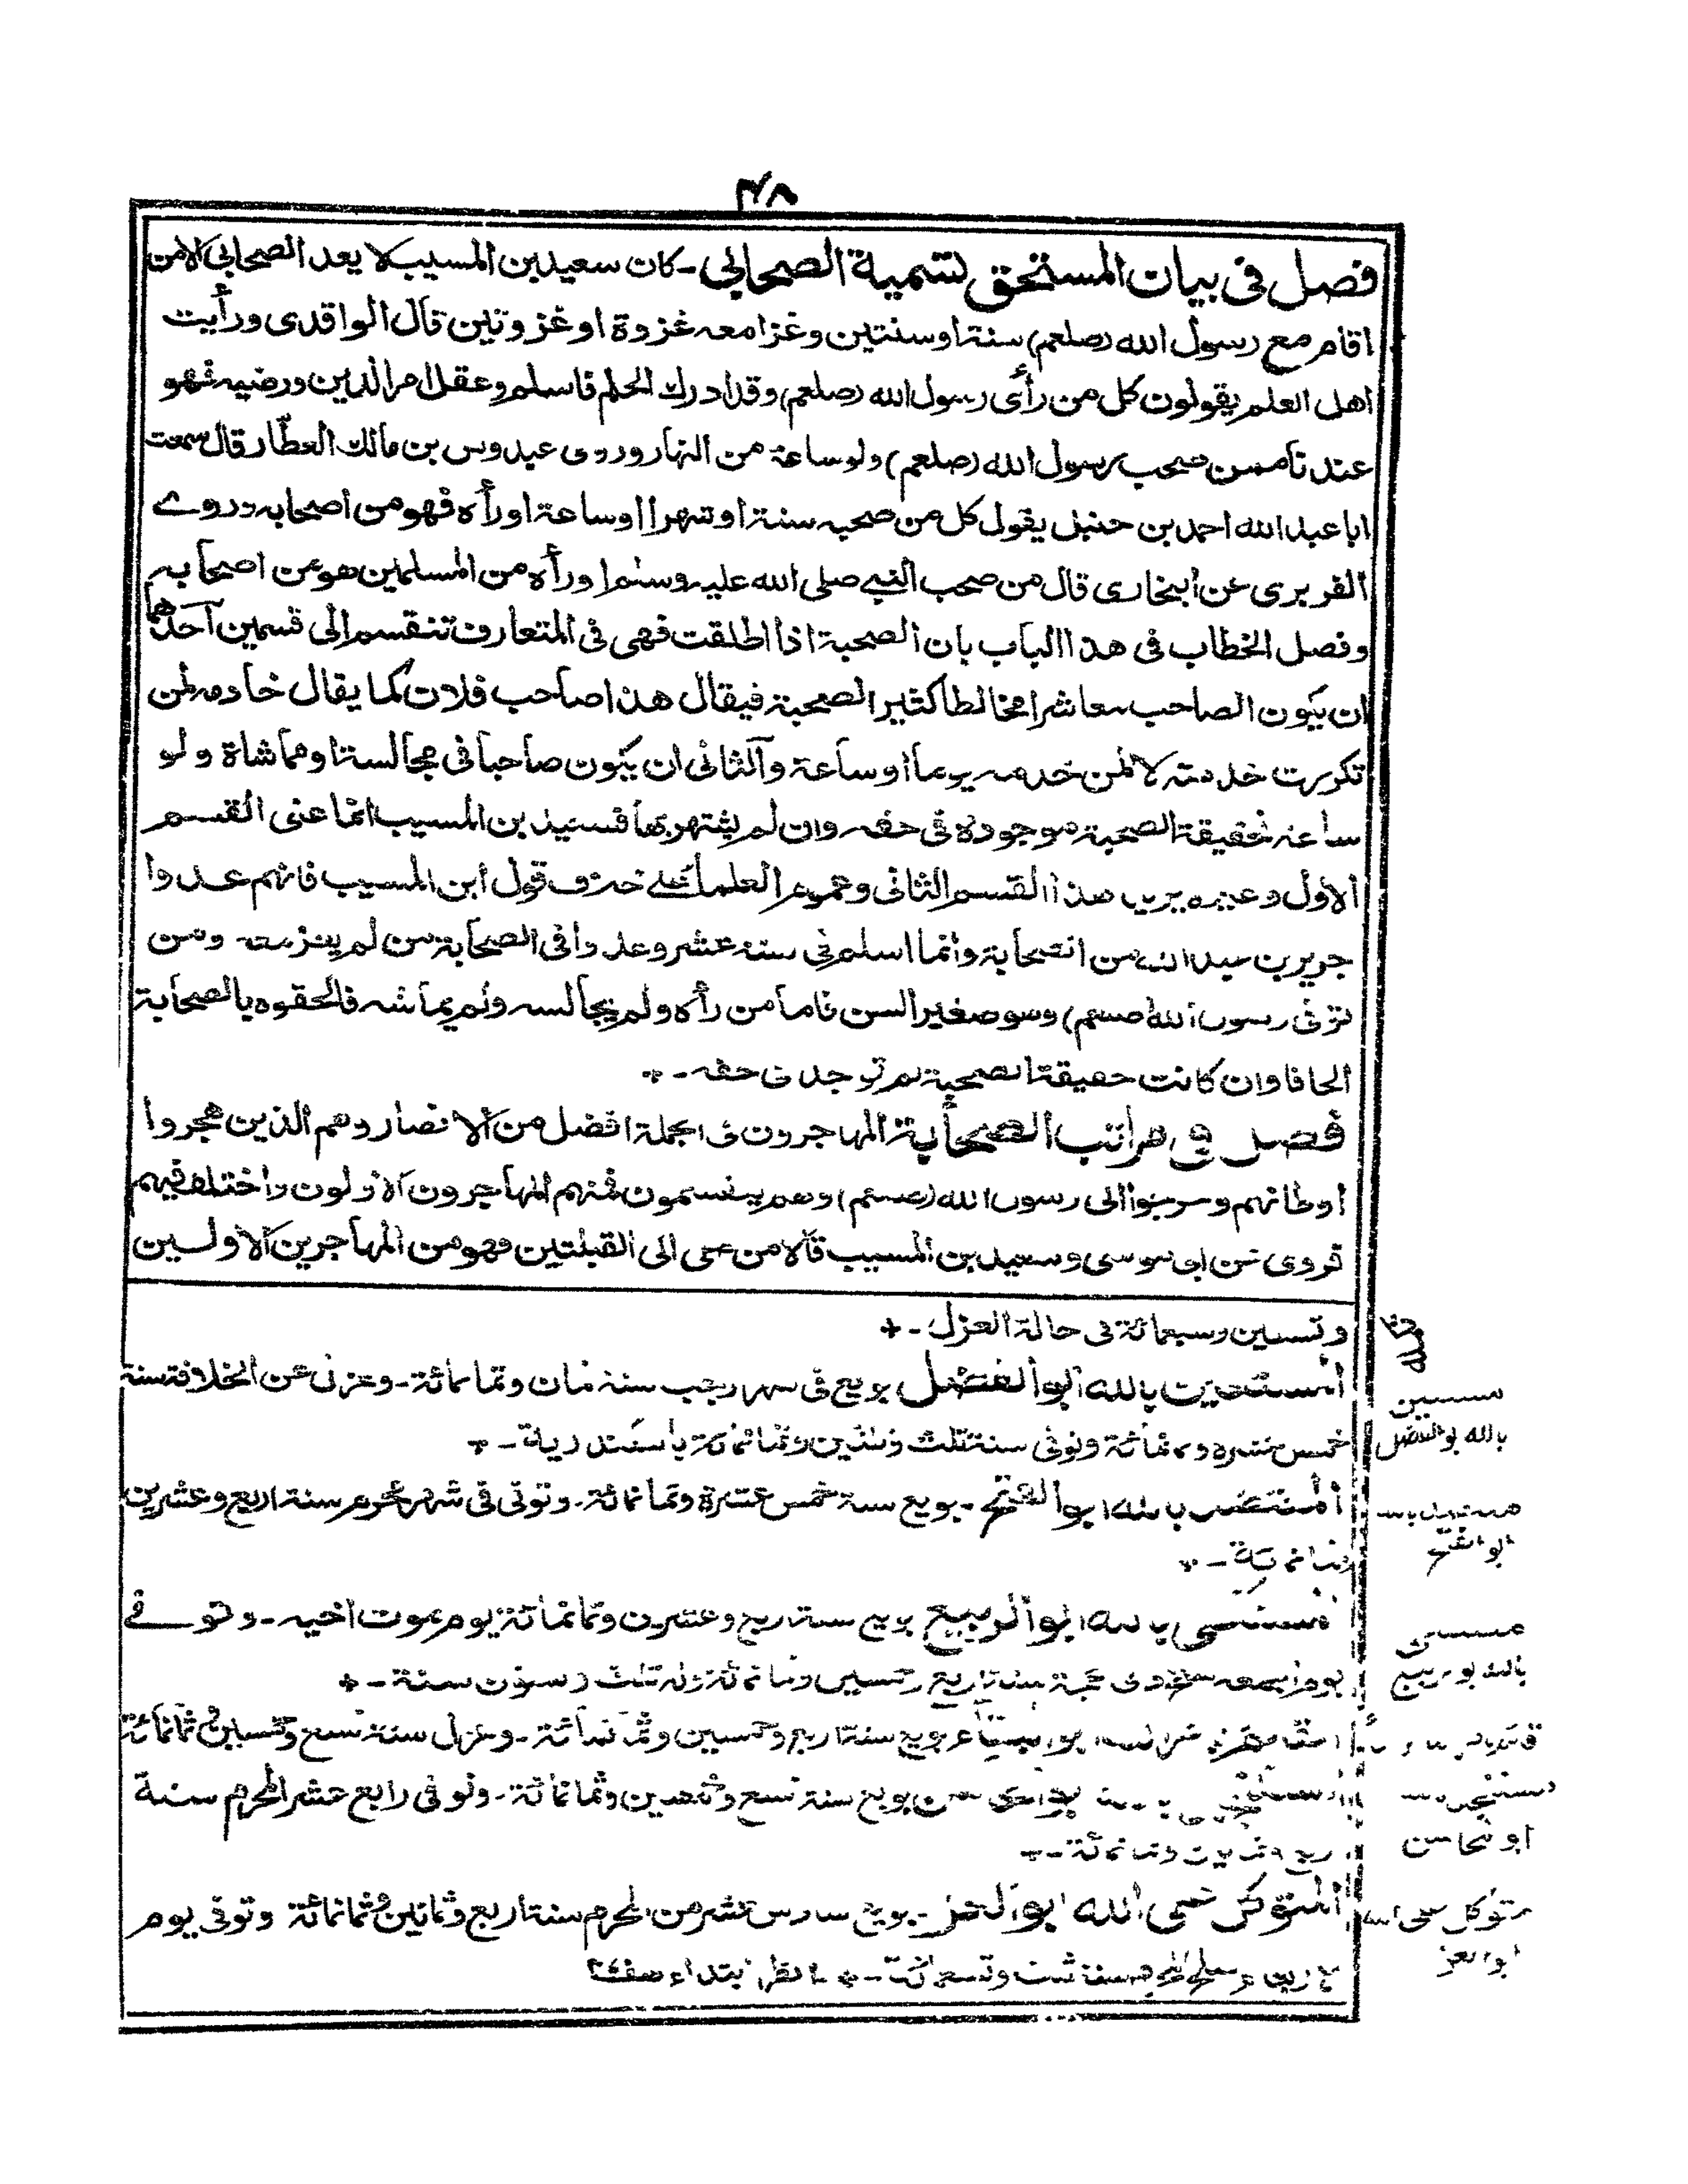 ۴۸
فصل فی بیان المستحق لتسمیة الصحابی - کان سعید بن المسیب لا یعد الصحابی الا من
اقام مع رسول الله (صلعم) سنة او سنتین وغزا معه غزوة او غزوتین قال الواقدی ورأیت
اهل العلم یقولون کل من رأی رسول الله (صلعم) وقد ادرك الحلم فاسلم وعقل امر الدین ورضیه فهو
عندنا ممن صحب رسول الله (صلعم) ولو ساعة من النهار وروی عبدوس بن مالك العطّار قال سمعت
ابا عبد الله احمد بن حنبل یقول کل من صحبه سنة او شهرا او ساعة او رأه فهو من اصحابه وروے
الفربری عن البخاری قال من صحب النبے صلی الله علیه وسلم او رأه من المسلمین هو من اصحابه
وفصل الخطاب فی هذا الباب بان الصحبة اذا اطلقت فهی فی المتعارف تنقسم الی قسمین آحدهما
ان یکون الصاحب معاشرا مخالطا کثیر الصحبة فیقال هذا صاحب فلان کما یقال خادمه لمن
تکررت خدمته لا لمن خدمه یوما او ساعة وآلثانی ان یکون صاحبا فی مجالسة او مماشاة ولو
ساعة فحقیقة الصحبة موجودة فی حقه وان لم یشتهر بها فسعید بن المسیب انما عنی القسم
الاول وغیره یرید هذا القسم الثانی وعموم العلماء علے خلاف قول ابن المسیب فانهم عدوا
جریر بن عبد الله من الصحابة وانما اسلم فی سنة عشر وعدوا فی الصحابة من لم یغز معه ومن
توفی رسول الله (صلعم) وهو صغیر السن فاما من رأه ولم یجالسه ولم یماشه فالحقوه بالصحابة
الحاقا وان کانت حقیقة الصحبة لم توجد فی حقه - *
فصل فی مراتب الصحابة المهاجرون فی الجملة افضل من الانصار وهم الذین هجروا
اوطانهم وخرجوا الی رسول الله (صلعم) وهم ینقسمون فمنهم المهاجرون الاولون واختلف فیهم
فروی عن ابی موسی وسعید بن المسیب قالا من صلی الی القبلتین فهو من المهاجرین الاولین
وتسعین وسبعمائة فی حالة العزل - *
المستعین بالله ابو الفضل بویع فی شهر رجب سنة ثمان وثمانمائة - وعزل عن الخلافة سنة
خمس عشرة وثمانمائة وتوفی سنة ثلث وثلثین وثمانمائة باسکندریة - *
المعتضد بالله ابو الفتح - بویع سنة خمس عشرة وثمانمائة - وتوفی فی شهر محرم سنة اربع وعشرین
وثمانمائة - *
المستکفی بالله ابو الربیع بویع سنة اربع وعشرین وثمانمائة یوم موت اخیه - وتوفے
یوم الجمعه ذی حجة سنة اربع وخمسین وثمانمائة وله ثلث وستون سنة - *
بویع سنة اربع وخمسین وثمانمائة - وعزل سنة تسع وخمسین وثمانمائة
بویع سنة تسع وخمسین وثمانمائة - وتوفی رابع عشر المحرم سنة
اربع وثمانین وثمانمائة - *
المتوکل علی الله ابو العز - بویع سادس عشر من المحرم سنة اربع وثمانین وثمانمائة وتوفی یوم
سنة ثلث وتسعمائة - *
مستعین
بالله ابو الفضل
ابو الفتح
بالله ابو ربیع
ابو محاسن
متوکل علی الله
ابو العز